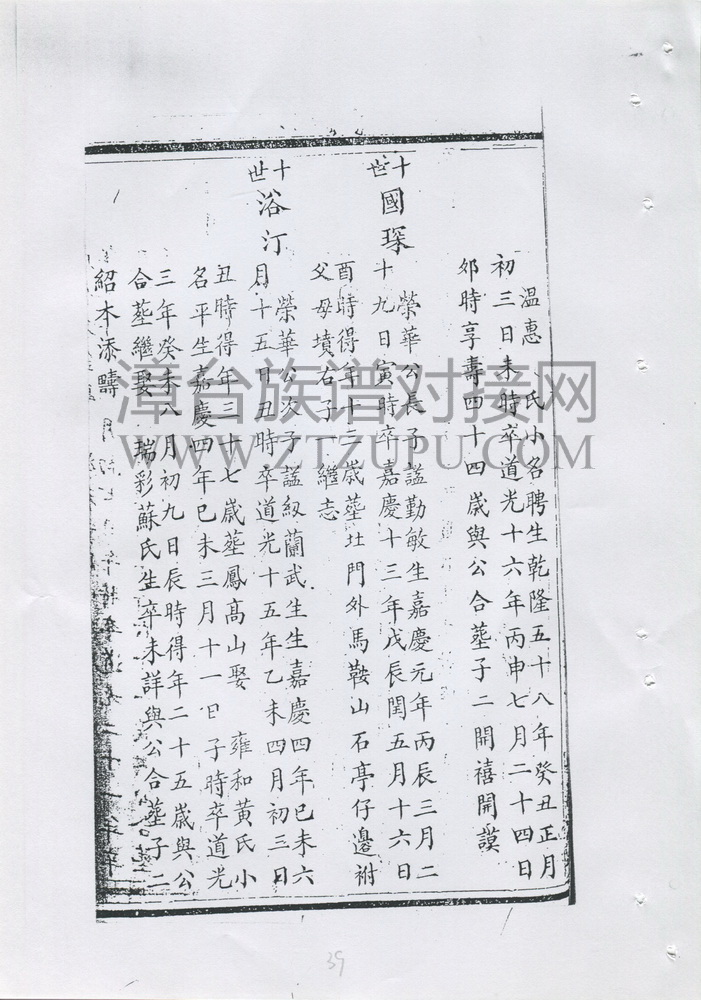 溫惠 氏小名聘生乾隆五十八年癸丑正月
初三日未時卒道光十六年丙申七月二十四日
夘時享壽四十四歲與公合塟子二開禧開謨
十世
國琛
榮華公長子諡勤敏生嘉慶元年丙辰三月二
十九日寅時卒嘉慶十三年戊辰閏五月十六日
酉時得年十三歲塟北門外馬鞍山石亭仔邊祔
父母墳右子一繼志
十世
浴汀
榮華公次子諡級蘭武生生嘉慶四年己未六
月十五日丑時卒道光十五年乙未四月初三日
丑時得年三十七歲塟鳳髙山娶 雍和黃氏小
名平生嘉慶四年己未三月十一日子時卒道光
三年癸未八月初九日辰時得年二十五歲與公
合塟繼娶 瑞彩蘇氏生卒未詳與公合塟子二
紹木添疇
漳台族谱对接网
WWW.ZTZUPU.COM
39